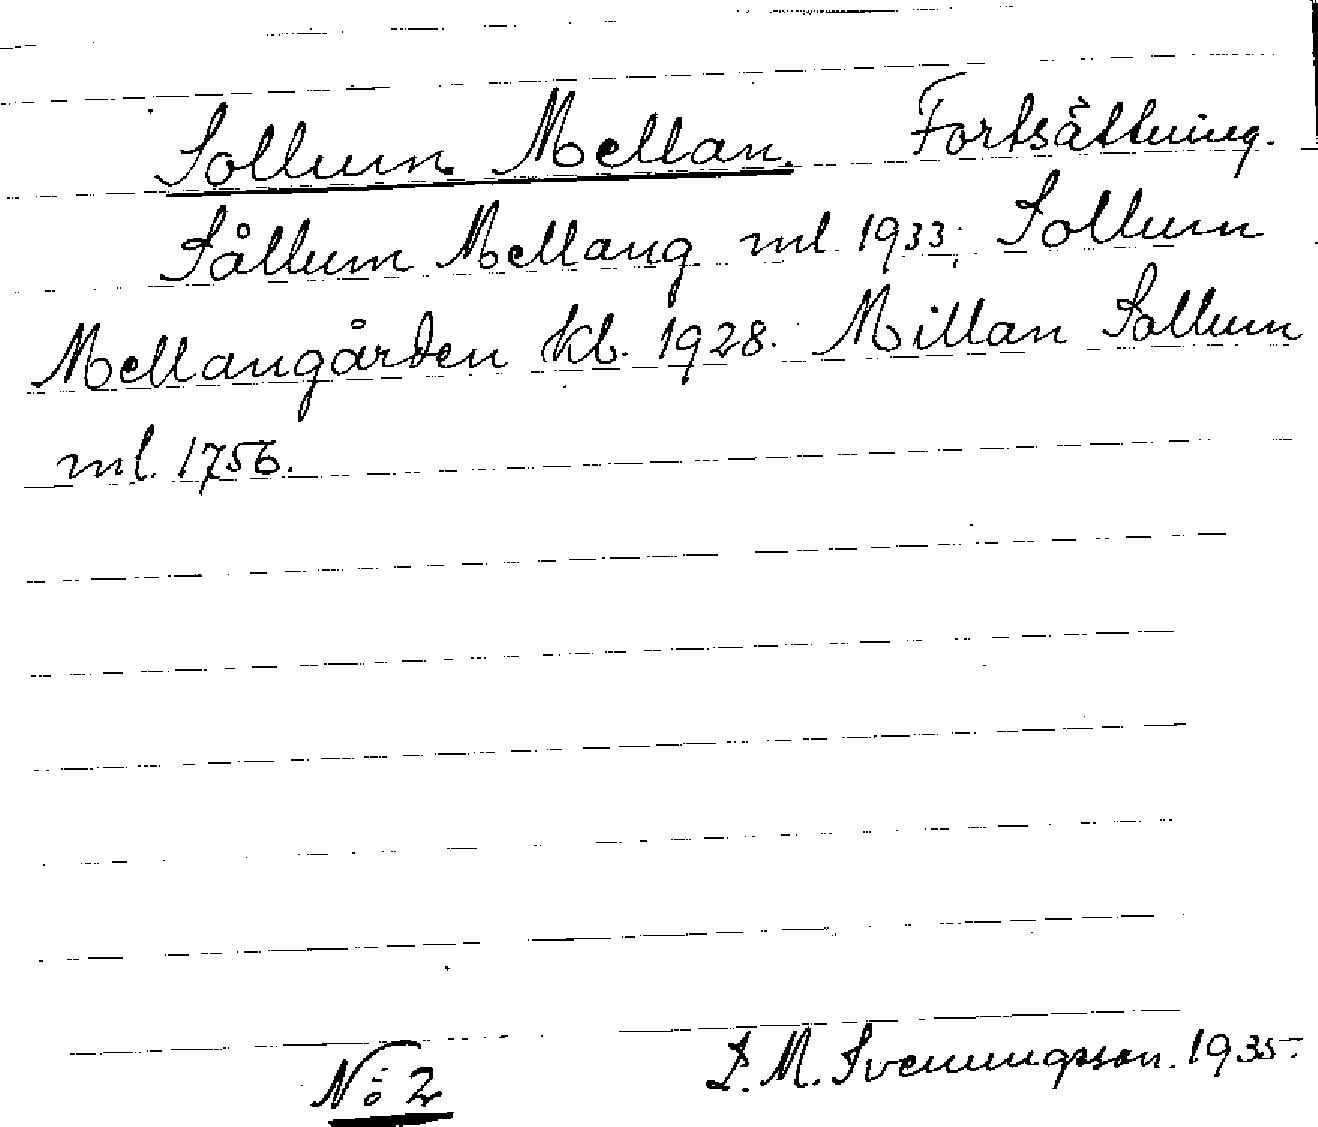 Sollum Mellan. Fortsättning.
Sållum Mellang ml 1933; Sollum
Mellangården kb. 1928. Millan Sollum
ml. 1756.
No 2 S. M. Svenungsson. 1935.